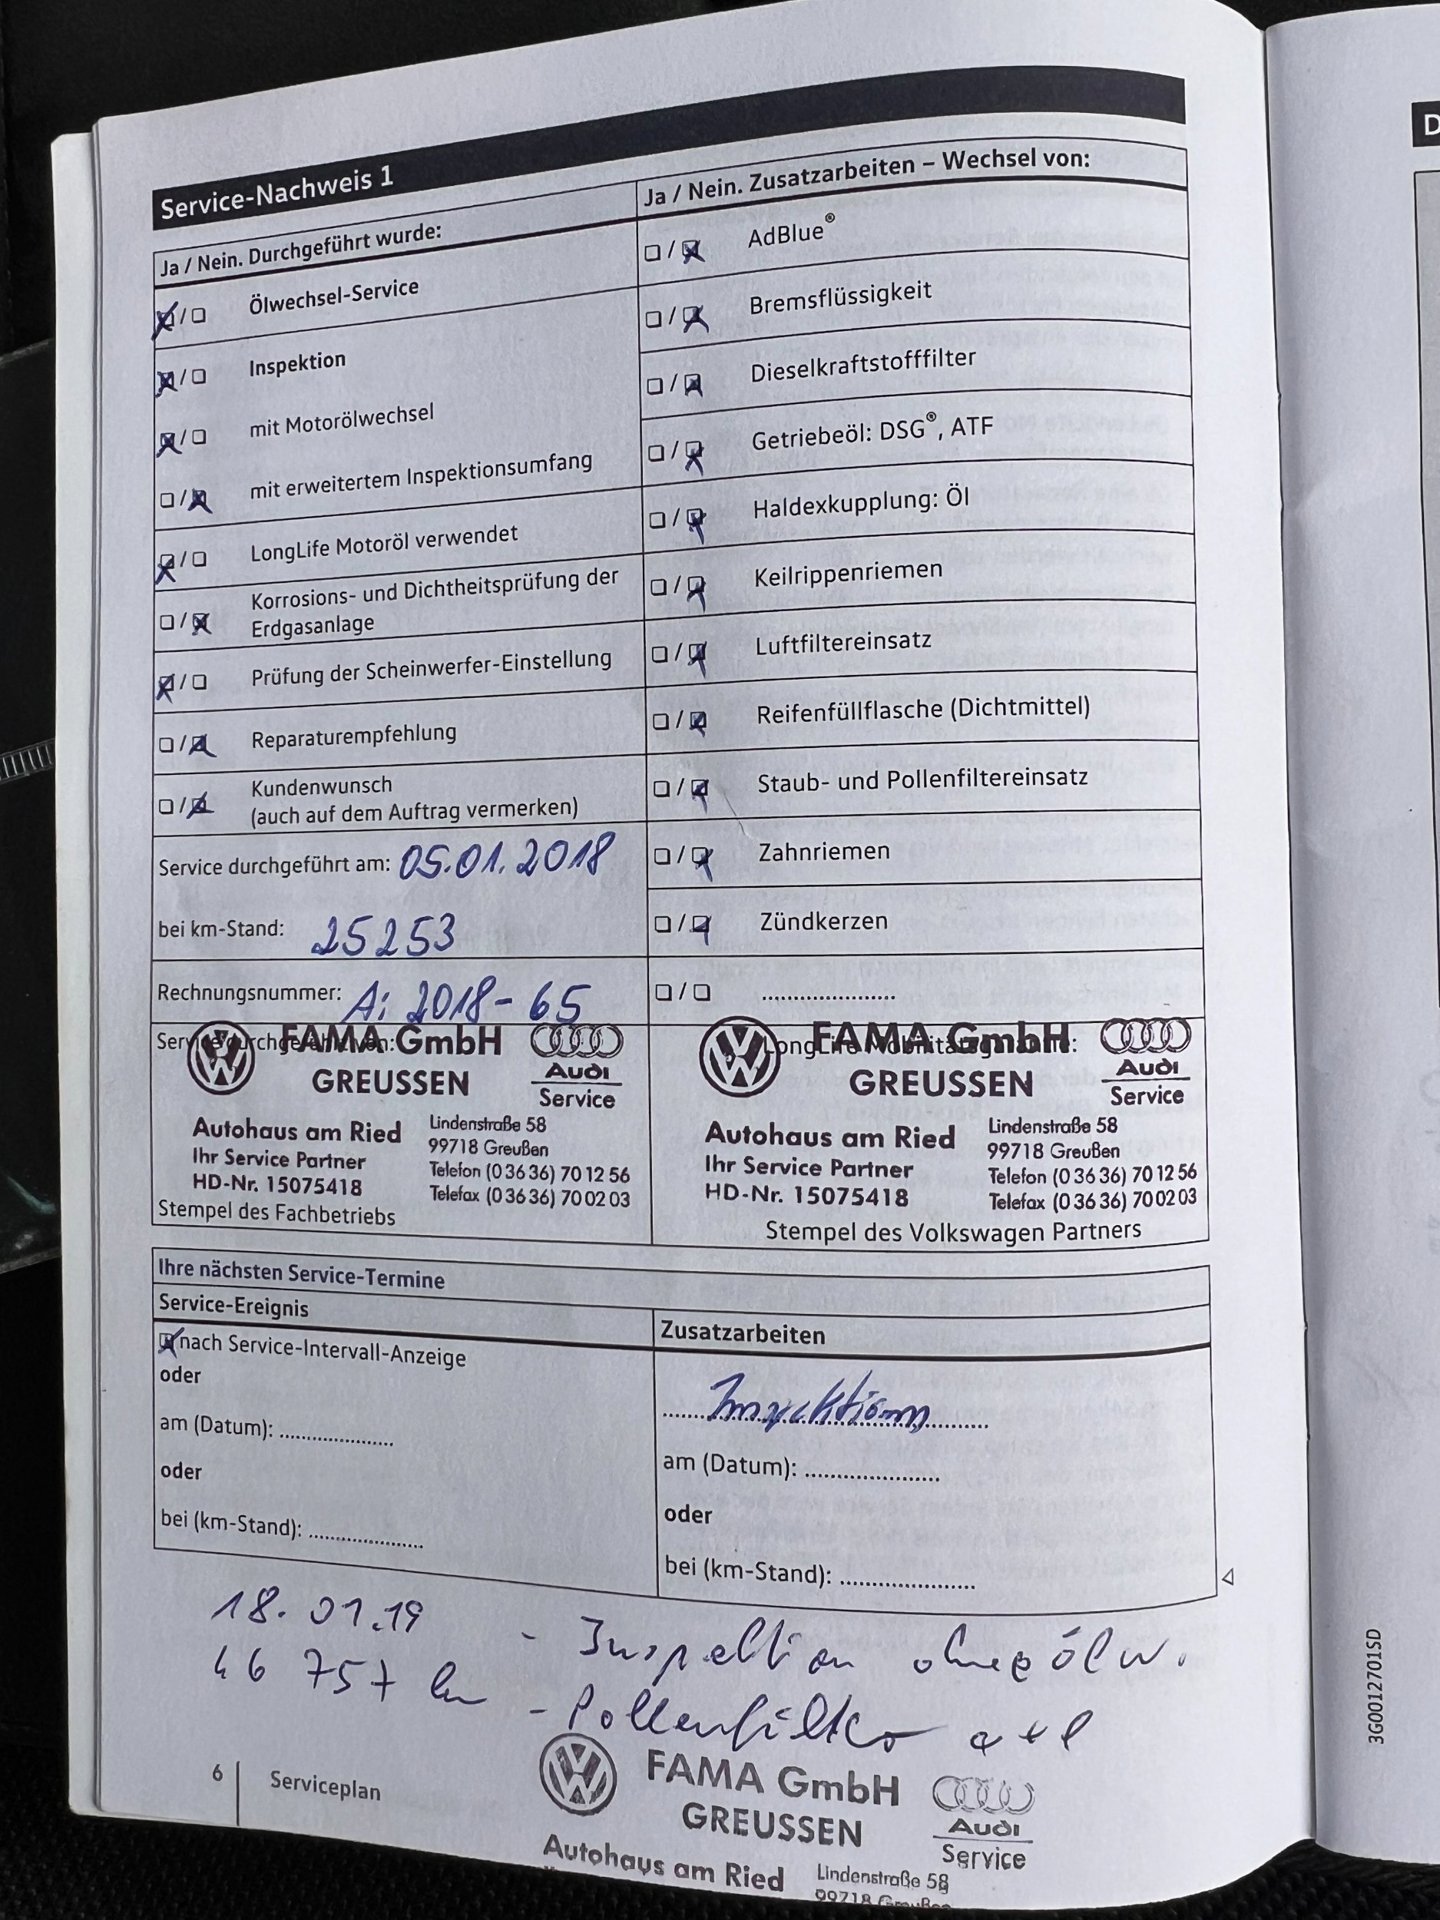 Service-Nachweis 1
Ja / Nein. Durchgeführt wurde:
Ölwechsel-Service
Inspektion
mit Motorölwechsel
mit erweitertem Inspektionsumfang
LongLife Motoröl verwendet
Korrosions- und Dichtheitsprüfung der
Erdgasanlage
Prüfung der Scheinwerfer-Einstellung
Reparaturempfehlung
Kundenwunsch
(auch auf dem Auftrag vermerken)
Service durchgeführt am: 05.01.2018
bei km-Stand: 25253
Rechnungsnummer: Ai 2018-65
Ja / Nein. Zusatzarbeiten – Wechsel von:
AdBlue®
Bremsflüssigkeit
Dieselkraftstofffilter
Getriebeöl: DSG®, ATF
Haldexkupplung: Öl
Keilrippenriemen
Luftfiltereinsatz
Reifenfüllflasche (Dichtmittel)
Staub- und Pollenfiltereinsatz
Zahnriemen
Zündkerzen
Service durchgeführt von:
FAMA GmbH
GREUSSEN
Audi
Service
Autohaus am Ried
Ihr Service Partner
HD-Nr. 15075418
Lindenstraße 58
99718 Greußen
Telefon (0 36 36) 70 12 56
Telefax (0 36 36) 70 02 03
Stempel des Fachbetriebs
LongLife Mobilitätsgarantie:
FAMA GmbH
GREUSSEN
Audi
Service
Autohaus am Ried
Ihr Service Partner
HD-Nr. 15075418
Lindenstraße 58
99718 Greußen
Telefon (0 36 36) 70 12 56
Telefax (0 36 36) 70 02 03
Stempel des Volkswagen Partners
Ihre nächsten Service-Termine
Service-Ereignis
nach Service-Intervall-Anzeige
oder
am (Datum): ....................
oder
bei (km-Stand): ....................
Zusatzarbeiten
Inspektion
am (Datum): ....................
oder
bei (km-Stand): ....................
18.01.19 - Inspektion ohne Ölw.
46 757 km - Pollenfilter
6 Serviceplan
FAMA GmbH
GREUSSEN
Audi
Service
Autohaus am Ried
Lindenstraße 58
99718 Greußen
3G0012701SD
D